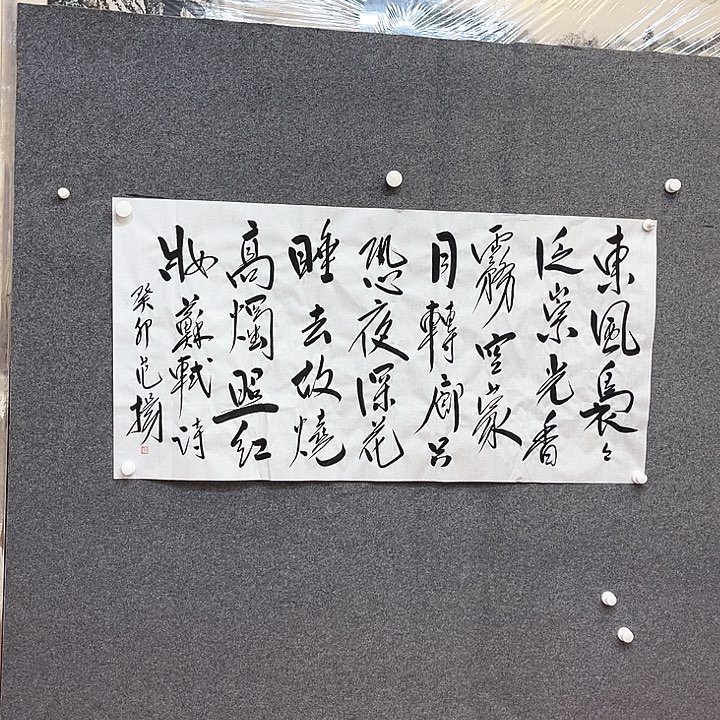 東風裊々
泛崇光香
霧空蒙
月轉廊只
恐夜深花
睡去故燒
高燭照红
妝蘇軾詩
癸卯范揚